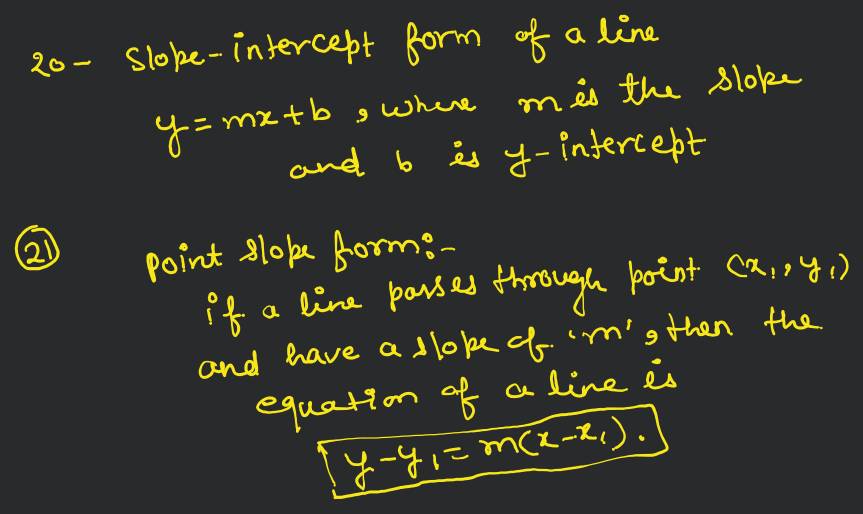 20- Slope-intercept form of a line
y=mx+b, where m is the slope
and b is y-intercept
(21) point slope form:-
if a line passes through point (x₁, y₁)
and have a slope of 'm', then the
equation of a line is
y-y₁=m(x-x₁).